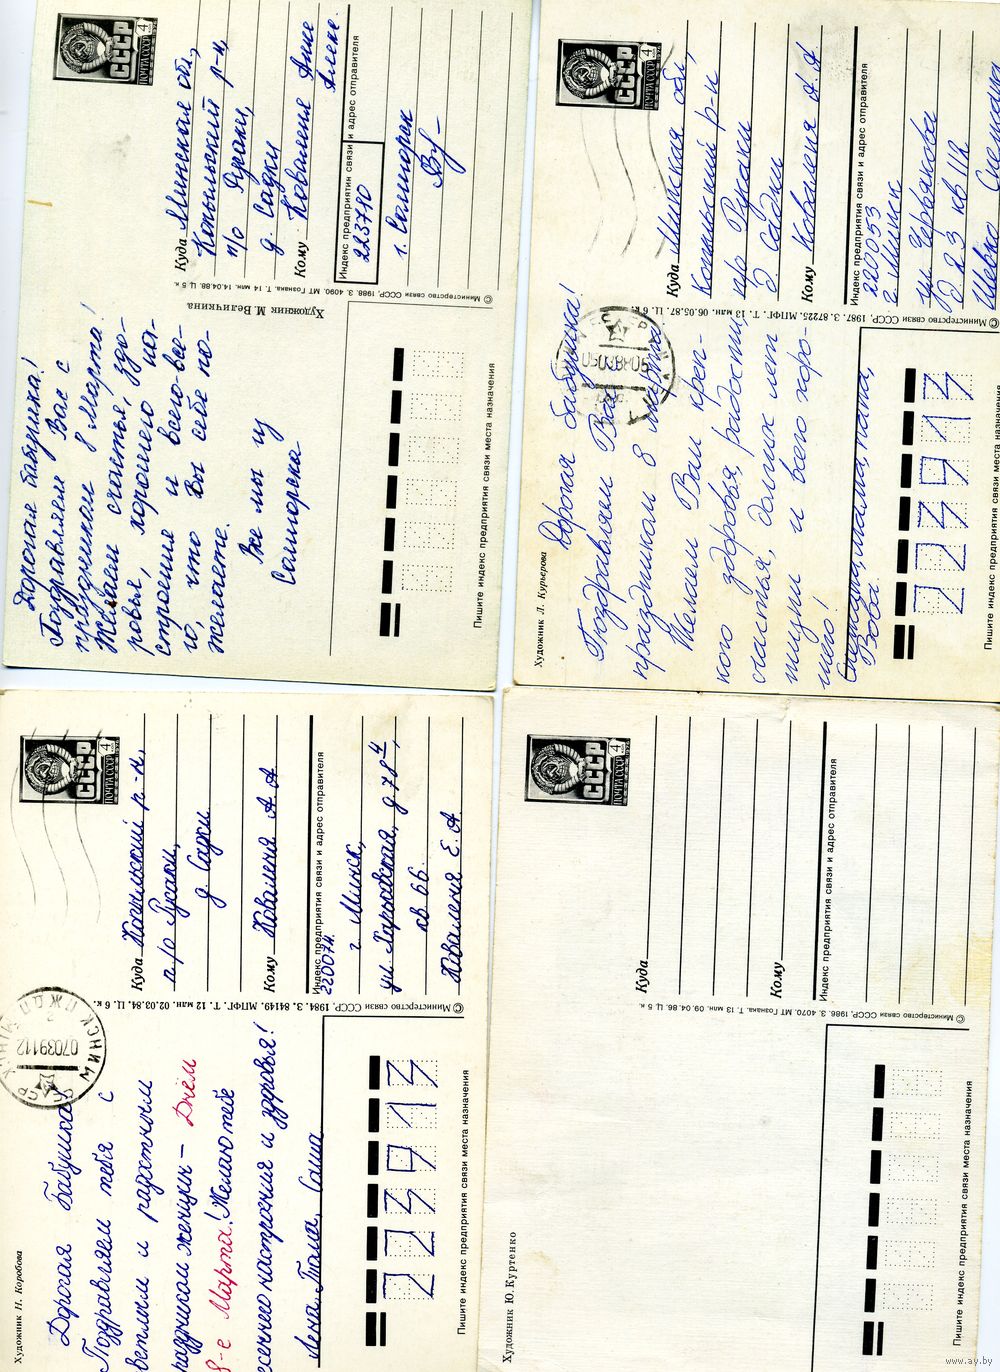 Дорогая бабушка!
Поздравляем Вас с
праздником 8 Марта!
Желаем счастья, здо-
ровья, хорошего на-
строения и всего-все-
го, что Вы себе по-
желаете.
Все мы из
Солигорска
Художник М. Величкина
© Министерство связи СССР, 1988. З. 4090. МТ Гознака. Т. 14 млн. 14.04.88. Ц. 5 к.
ПОЧТА СССР 4
СССР
Куда Минская обл.,
Копыльский р-н,
п/о Русаки,
д. Садки
Кому Коваленя Анне
Алекс.
Индекс предприятия связи и адрес отправителя
223710
г. Солигорск
Пишите индекс предприятия связи места назначения
Художник Л. Курьерова
Дорогая бабушка!
Поздравляем Вас
праздником 8 марта
Желаем Вам креп-
кого здоровья, радости,
счастья, долгих лет
жизни и всего хоро-
шего!
мама, папа,
Вова.
© Министерство связи СССР, 1987. З. 87225. МПФГ. Т. 13 млн. 06.05.87. Ц. 6 к.
050388
ПОЧТА СССР 4
СССР
Куда Минская обл,
Копыльский р-н
п/о Русаки
д. Садки
Кому Коваленя А А
Индекс предприятия связи и адрес отправителя
220053
г. Минск
ул Червякова
д 23 кв 112
Шевко
223913
Пишите индекс предприятия связи места назначения
Художник Н. Коробова
Дорогая Бабушка!
Поздравляем тебя с
ветлым и радостным
раздником женщин - Днём
8-е Марта! Желаю тебе
есеннего настроения и здоровья!
Лена, Толя, Саша
© Министерство связи СССР, 1984. З. 84149. МПФГ. Т. 12 млн. 02.03.84. Ц. 6 к.
МИНСК ПЖДП
0703911 2
ПОЧТА СССР 4
СССР
Куда Копыльский р-н,
п/о Русаки,
д. Садки
Кому Коваленя А А
Индекс предприятия связи и адрес отправителя
220074.
г. Минск,
ул. Харьковская, д 78 4,
кв 66.
Коваленя Е. А
223913
Пишите индекс предприятия связи места назначения
Художник Ю. Куртенко
© Министерство связи СССР, 1986. З. 4070. МТ Гознака. Т. 13 млн. 09.04.86. Ц. 5 к.
ПОЧТА СССР 4
СССР
Куда
Кому
Индекс предприятия связи и адрес отправителя
Пишите индекс предприятия связи места назначения
www.ay.by